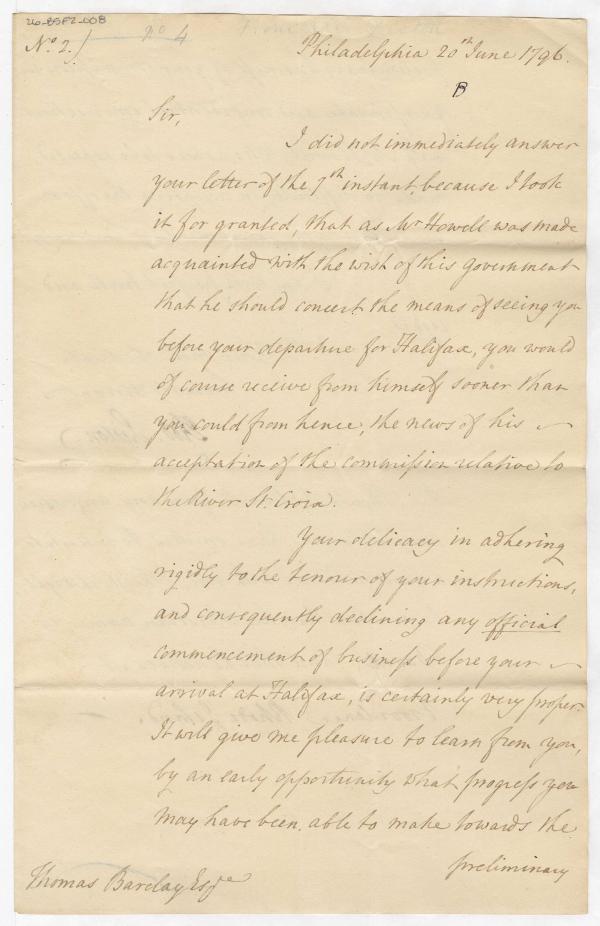 26-BSF2-008
No. 2. no 4
Philadelphia 20th June 1796.
B
Sir,
I did not immediately answer
your letter of the 7th instant, because I took
it for granted, that as Mr Howell was made
acquainted with the wish of this Government
that he should concert the means of seeing you
before your departure for Halifax, you would
of course receive from himself sooner than
you could from hence, the news of his
acceptation of the commission relative to
the River St. Croix.
Your delicacy in adhering
rigidly to the tenour of your instructions,
and consequently declining any official
commencement of business before your
arrival at Halifax, is certainly very proper.
It will give me pleasure to learn from you,
by an early opportunity what progress you
may have been able to make towards the
preliminary
Thomas Barclay Esqre